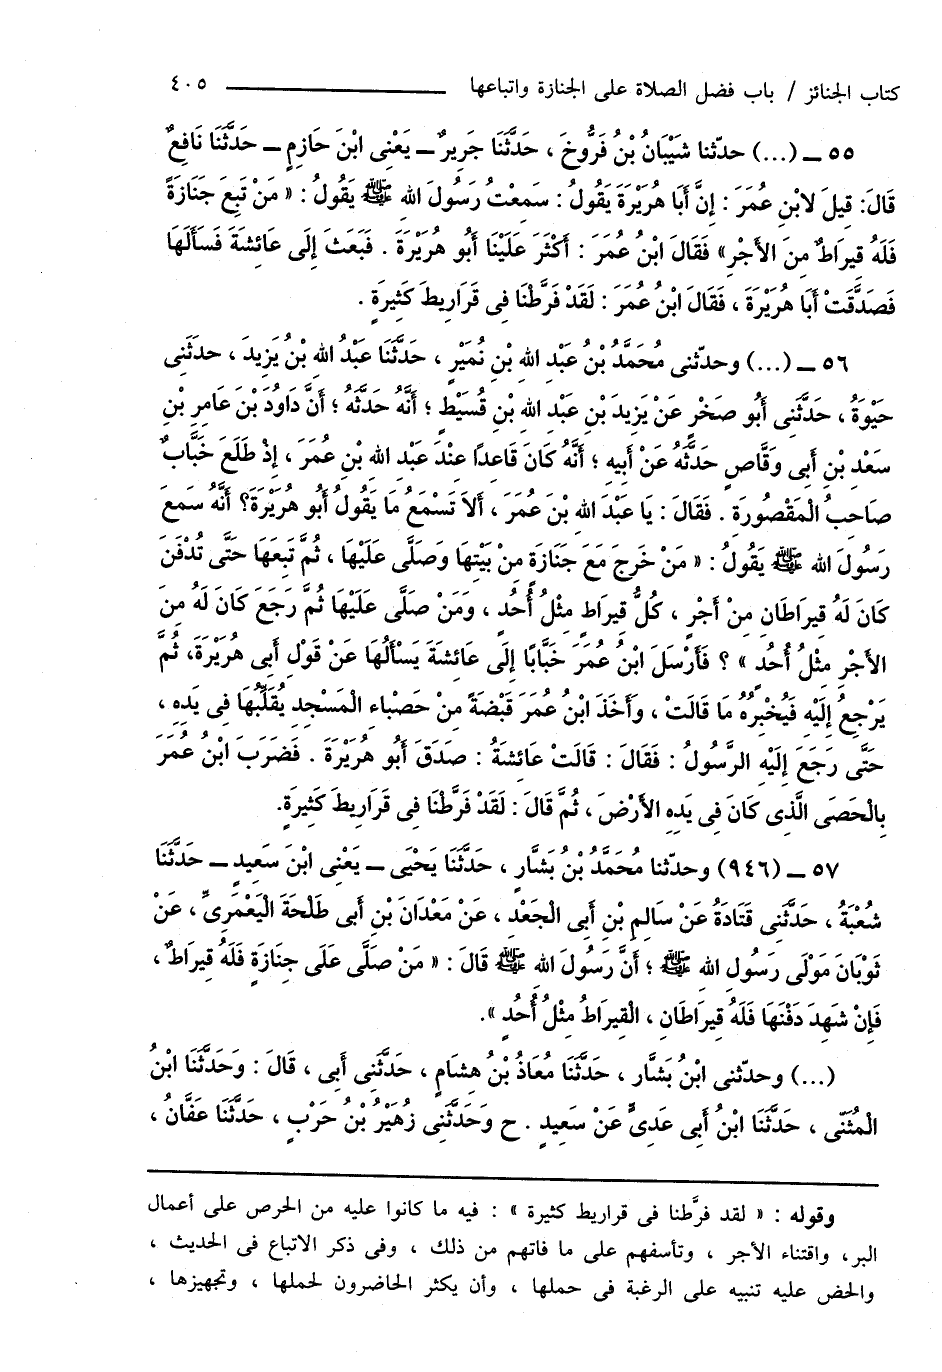 كتاب الجنائز / باب فضل الصلاة على الجنازة واتباعها ــــــــــــ ٤٠٥
٥٥ ــ (...) حدّثنا شَيْبَانُ بْنُ فَرُّوخَ ، حَدَّثَنَا جَرِيرٌ ــ يَعْنِى ابْنَ حَازِمٍ ــ حَدَّثَنَا نَافِعٌ
قَالَ: قِيلَ لابْنِ عُمَرَ : إِنَّ أَبَا هُرَيْرَةَ يَقُولُ : سَمِعْتُ رَسُولَ الله ﷺ يَقُولُ : « مَنْ تَبِعَ جَنَازَةً
فَلَهُ قِيرَاطٌ مِنَ الأَجْرِ» فَقَالَ ابْنُ عُمَرَ : أَكْثَرَ عَلَيْنَا أَبُو هُرَيْرَةَ . فَبَعَثَ إِلَى عَائِشَةَ فَسَأَلَهَا
فَصَدَّقَتْ أَبَا هُرَيْرَةَ ، فَقَالَ ابْنُ عُمَرَ : لَقَدْ فَرَّطْنَا فِى قَرَارِيطَ كَثِيرَةٍ .
٥٦ ــ (...) وحدّثنى مُحَمَّدُ بْنُ عَبْدِ الله بْنِ نُمَيْرٍ ، حَدَّثَنَا عَبْدُ الله بْنُ يَزِيدَ ، حَدَّثَنِى
حَيْوَةُ ، حَدَّثَنِى أَبُو صَخْرٍ عَنْ يَزِيدَ بْنِ عَبْدِ الله بْنِ قُسَيْطٍ ؛ أَنَّهُ حَدَّثَهُ ؛ أَنَّ دَاوُدَ بْنَ عَامِرِ بْنِ
سَعْدِ بْنِ أَبِى وَقَّاصٍ حَدَّثَهُ عَنْ أَبِيهِ ؛ أَنَّهُ كَانَ قَاعِدًا عِنْدَ عَبْدِ الله بْنِ عُمَرَ ، إِذْ طَلَعَ خَبَّابٌ
صَاحِبُ الْمَقْصُورَةِ . فَقَالَ : يَا عَبْدَ الله بْنَ عُمَرَ ، أَلاَ تَسْمَعُ مَا يَقُولُ أَبُو هُرَيْرَةَ؟ أَنَّهُ سَمِعَ
رَسُولَ الله ﷺ يَقُولُ : « مَنْ خَرَجَ مَعَ جَنَازَةٍ مِنْ بَيْتِهَا وَصَلَّى عَلَيْهَا ، ثُمَّ تَبِعَهَا حَتَّى تُدْفَنَ
كَانَ لَهُ قِيرَاطَانِ مِنْ أَجْرٍ ، كُلُّ قِيرَاطٍ مِثْلُ أُحُدٍ ، وَمَنْ صَلَّى عَلَيْهَا ثُمَّ رَجَعَ كَانَ لَهُ مِنَ
الأَجْرِ مِثْلُ أُحُدٍ » ؟ فَأَرْسَلَ ابْنُ عُمَرَ خَبَّابًا إِلَى عَائِشَةَ يَسْأَلُهَا عَنْ قَوْلِ أَبِى هُرَيْرَةَ، ثُمَّ
يَرْجِعُ إِلَيْهِ فَيُخْبِرُهُ مَا قَالَتْ ، وَأَخَذَ ابْنُ عُمَرَ قَبْضَةً مِنْ حَصْبَاءِ الْمَسْجِدِ يُقَلِّبُهَا فِى يَدِهِ ،
حَتَّى رَجَعَ إِلَيْهِ الرَّسُولُ : فَقَالَ : قَالَتْ عَائِشَةُ : صَدَقَ أَبُو هُرَيْرَةَ . فَضَرَبَ ابْنُ عُمَرَ
بِالْحَصَى الَّذِى كَانَ فِى يَدِهِ الأَرْضَ ، ثُمَّ قَالَ : لَقَدْ فَرَّطْنَا فِى قَرَارِيطَ كَثِيرَةٍ.
٥٧ ــ (٩٤٦) وحدّثنا مُحَمَّدُ بْنُ بَشَّارٍ ، حَدَّثَنَا يَحْيَى ــ يَعْنِى ابْنَ سَعِيدٍ ــ حَدَّثَنَا
شُعْبَةُ ، حَدَّثَنِى قَتَادَةُ عَنْ سَالِمِ بْنِ أَبِى الْجَعْدِ ، عَنْ مَعْدَانَ بْنِ أَبِى طَلْحَةَ الْيَعْمَرِىِّ ، عَنْ
ثَوْبَانَ مَوْلَى رَسُولِ الله ﷺ ؛ أَنَّ رَسُولَ الله ﷺ قَالَ : « مَنْ صَلَّى عَلَى جِنَازَةٍ فَلَهُ قِيرَاطٌ ،
فَإِنْ شَهِدَ دَفْنَهَا فَلَهُ قِيرَاطَانِ ، الْقِيرَاطُ مِثْلُ أُحُدٍ ».
(...) وحدّثنى ابْنُ بَشَّارٍ ، حَدَّثَنَا مُعَاذُ بْنُ هِشَامٍ ، حَدَّثَنِى أَبِى ، قَالَ : وَحَدَّثَنَا ابْنُ
الْمُثَنَّى ، حَدَّثَنَا ابْنُ أَبِى عَدِىٍّ عَنْ سَعِيدٍ . ح وَحَدَّثَنِى زُهَيْرُ بْنُ حَرْبٍ ، حَدَّثَنَا عَفَّانُ ،
وقوله : « لقد فرَّطنا فى قراريط كثيرة » : فيه ما كانوا عليه من الحرص على أعمال
البر، واقتناء الأجر ، وتأسفهم على ما فاتهم من ذلك ، وفى ذكر الاتباع فى الحديث ،
والحض عليه تنبيه على الرغبة فى حملها ، وأن يكثر الحاضرون لحملها ، وتجهيزها ،